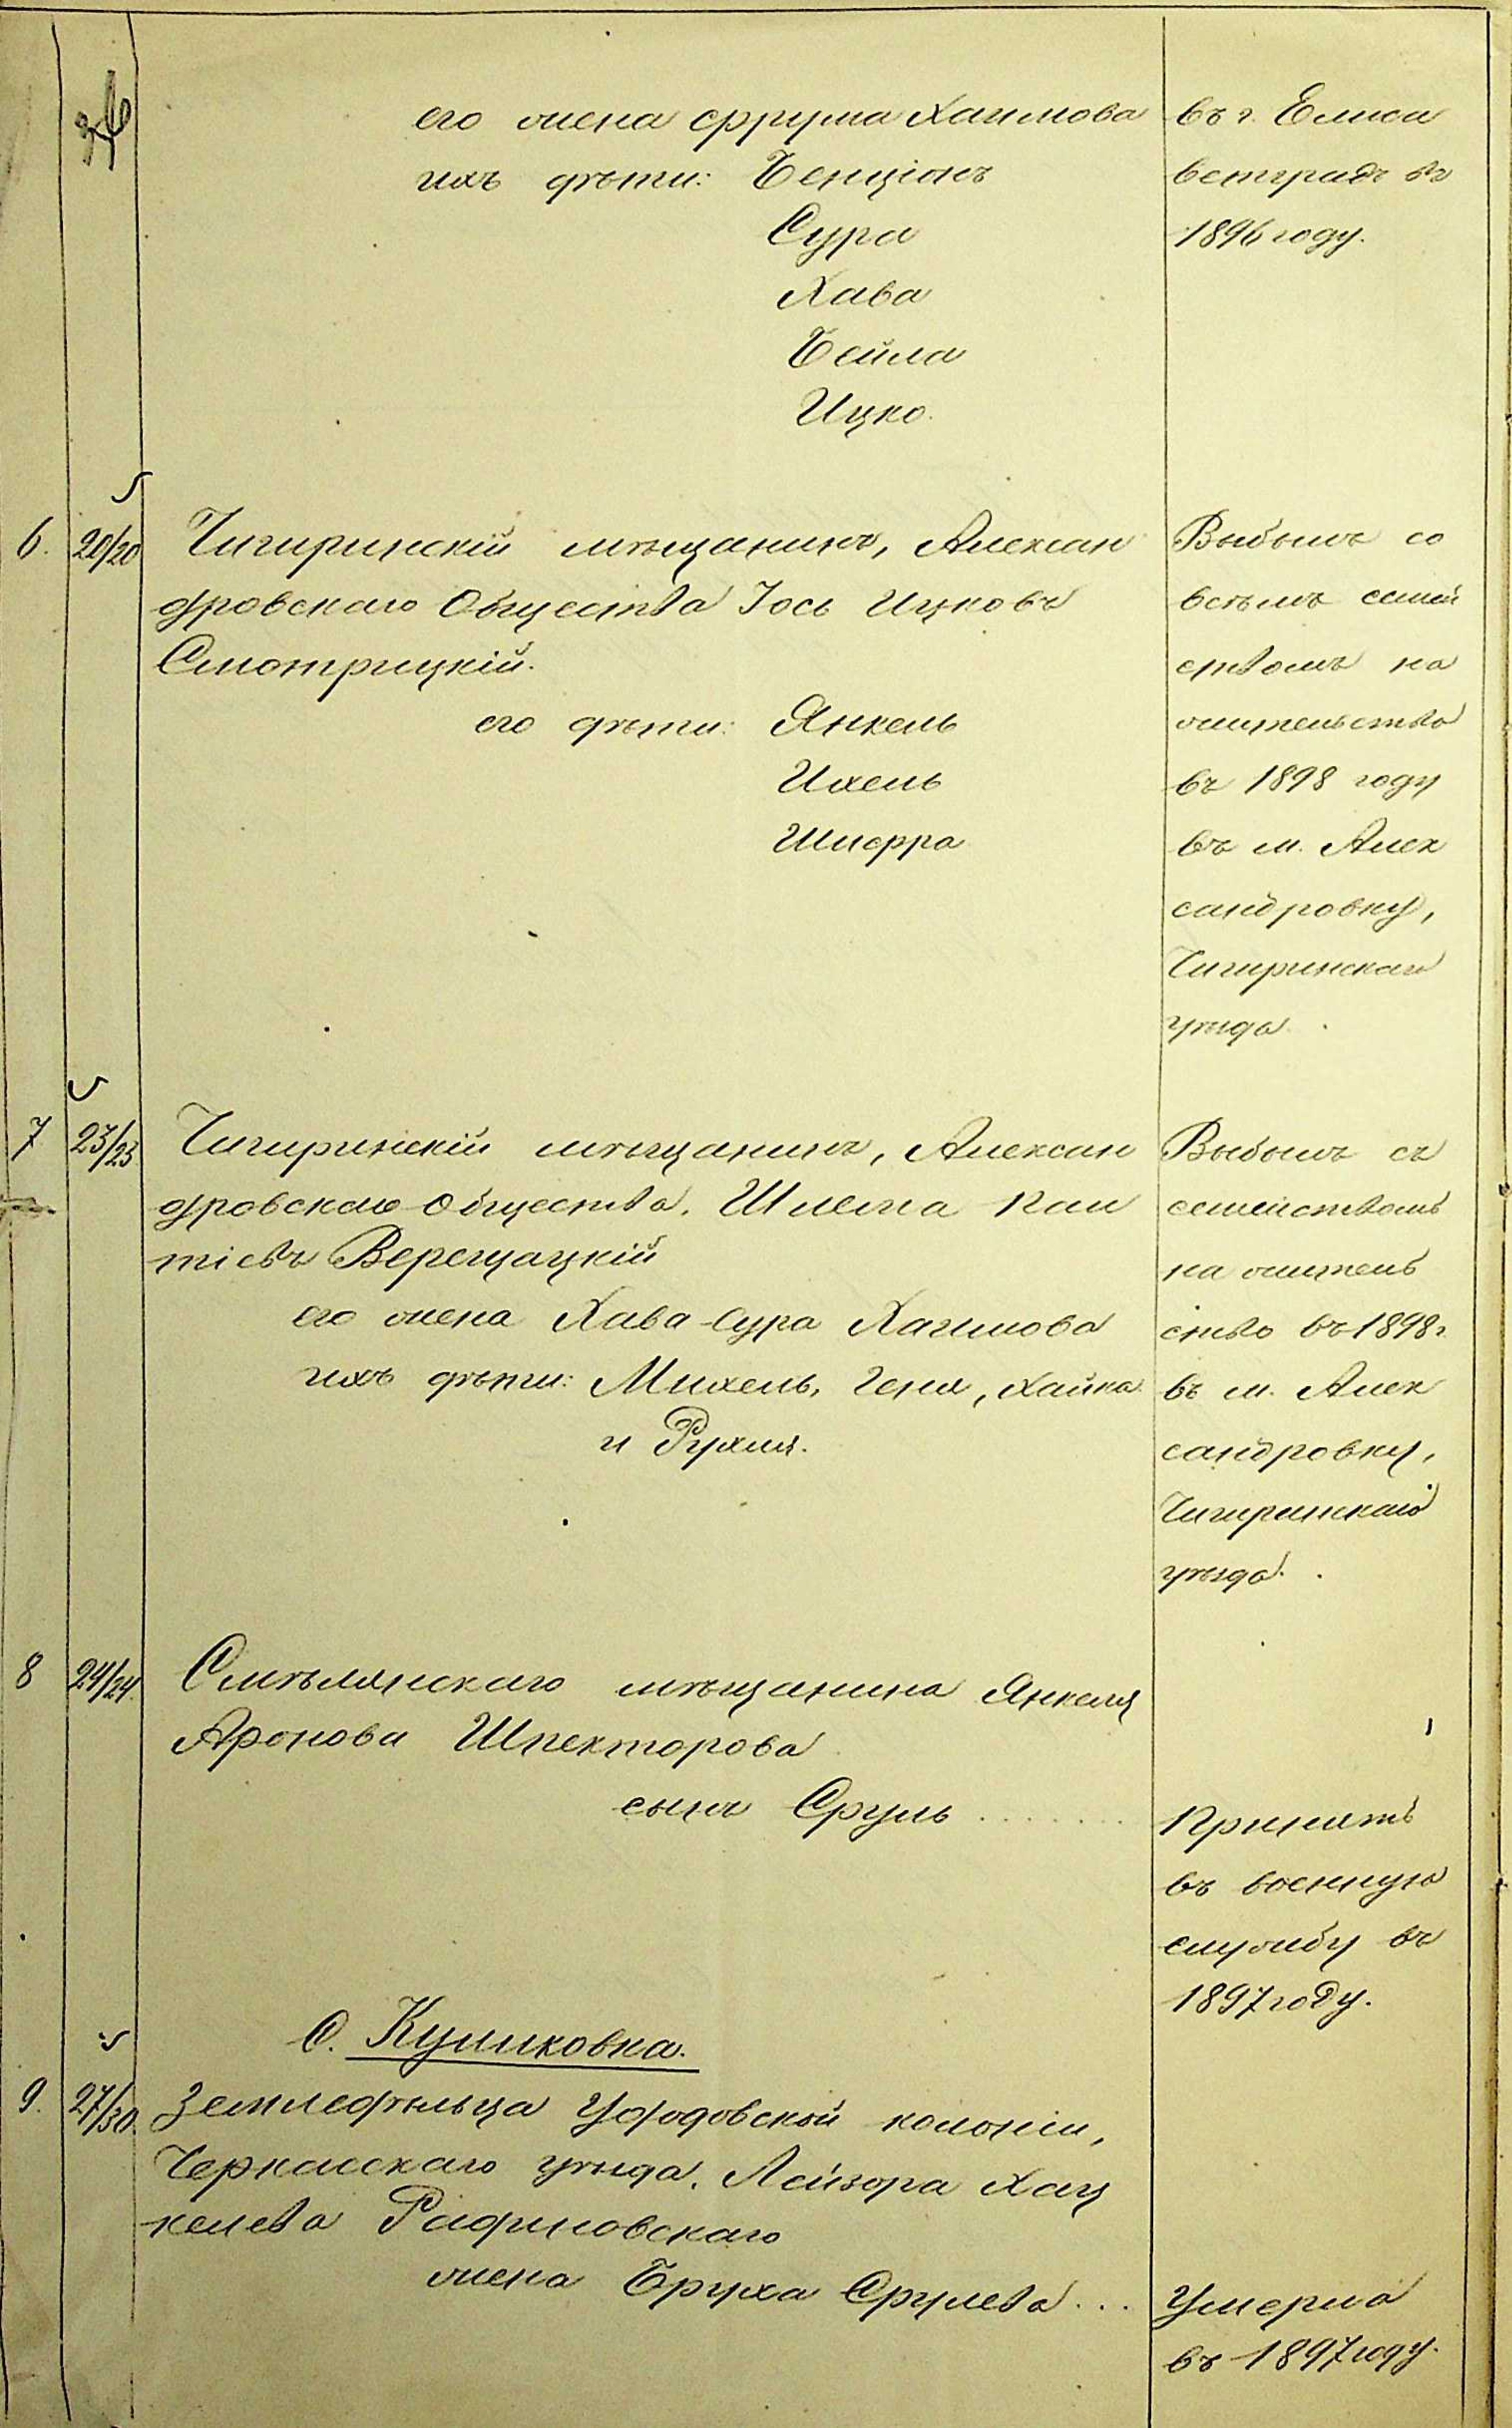 его жена Фрума Хаимова
въ г. Елиса
ихъ дѣти: Бенціонъ
ветградъ въ
Сура
1896 году.
Хава
Бейла
Ицко.
6. 20/20 Чигиринскій мѣщанинъ, Алексан
Выбылъ со
дровскаго Общества Іось Ицковъ
всѣмъ семей
Смотрицкій.
ствомъ на
его дѣти: Янкель
жительство
Ихель
въ 1898 году
Шифра
въ м. Алек
сандровку,
Чигиринскаго
уѣзда.
7 23/23 Чигиринскій мѣщанинъ, Алексан
Выбылъ съ
дровскаго Общества, Шлема
семействомъ
тіевъ Верещацкій
на житель
его жена Хава-Сура Хаимова
ство въ 1898 г.
ихъ дѣти: Михель, Геня, Хайка
въ м. Алек
и Рухля.
сандровку,
Чигиринскаго
уѣзда.
8 24/24 Смѣлянскаго мѣщанина Янкеля
Аронова Шпекторова
сынъ Сруль .......
Принятъ
въ военную
службу въ
1897 году.
С. Куликовка.
9. 27/30 Земледѣльца колоніи,
Черкасскаго уѣзда, Лейзора Хац
келева
жена Бруха Срулева ...
Умерла
въ 1897 году.